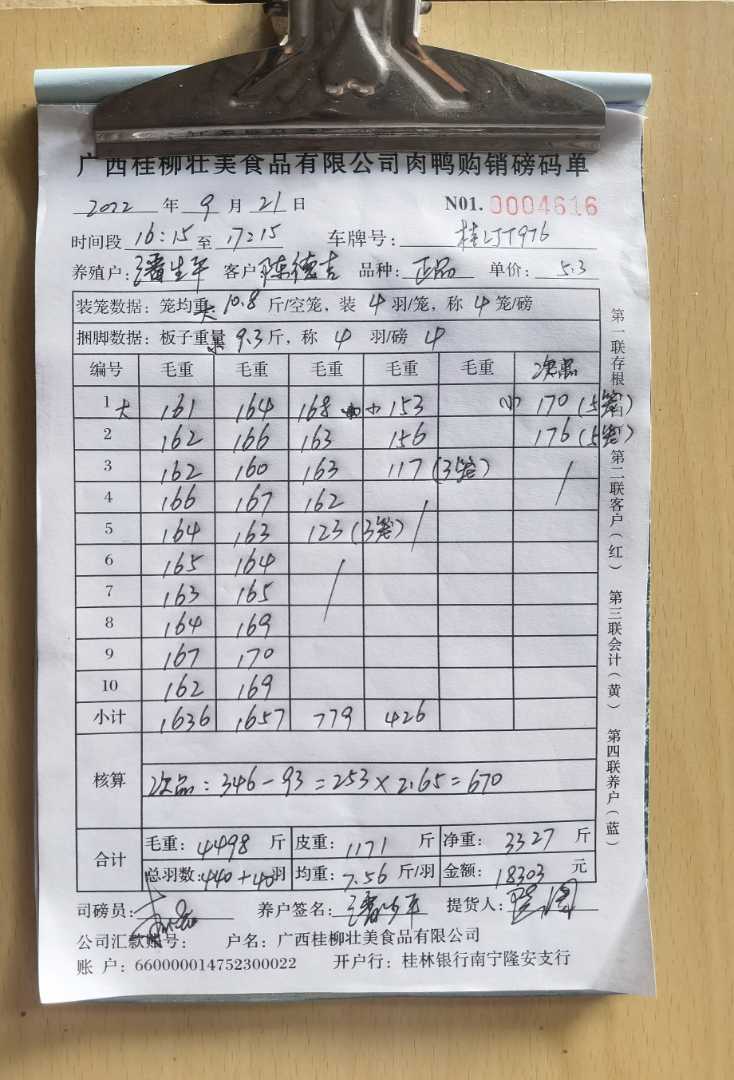 广西桂柳壮美食品有限公司肉鸭购销磅码单
2022 年 9 月 21 日 N01. 0004616
时间段 16:15 至 17:15 车牌号:
养殖户: 潘生平 客户: 陈德吉 品种: 正品 单价: 5.3
装笼数据: 笼均重 大 10.8 斤/空笼, 装 4 羽/笼, 称 4 笼/磅
捆脚数据: 板子重量 9.3 斤, 称 4 羽/磅 4
编号 毛重 毛重 毛重 毛重 毛重 次品
1 大 161 164 168 小 153 小 170 (5笼)
2 162 166 163 156 176 (5笼)
3 162 160 163 117 (3笼)
4 166 167 162
5 164 163 123 (3笼)
6 165 164
7 163 165
8 164 169
9 167 170
10 162 169
小计 1636 1657 779 426
核算 次品: 346-93=253×2.65=670
合计 毛重: 4498 斤 皮重: 1171 斤 净重: 3327 斤
总羽数: 440+40 羽 均重: 7.56 斤/羽 金额: 18303 元
司磅员: 养户签名: 提货人:
公司汇款账号: 户名: 广西桂柳壮美食品有限公司
账 户: 660000014752300022 开户行: 桂林银行南宁隆安支行
第一联存根(白) 第二联客户(红) 第三联会计(黄) 第四联养户(蓝)